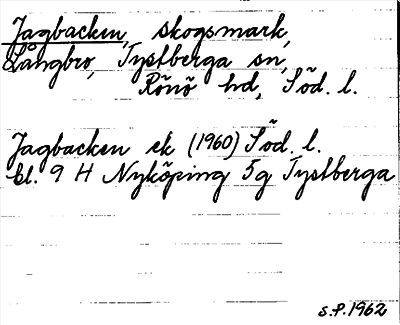 Jagbacken, skogsmark,
Långbro, Tystberga sn,
Rönö hd, Söd. l.
Jagbacken ek (1960) Söd. l.
bl. 9 H Nyköping 5g Tystberga
S.P. 1962